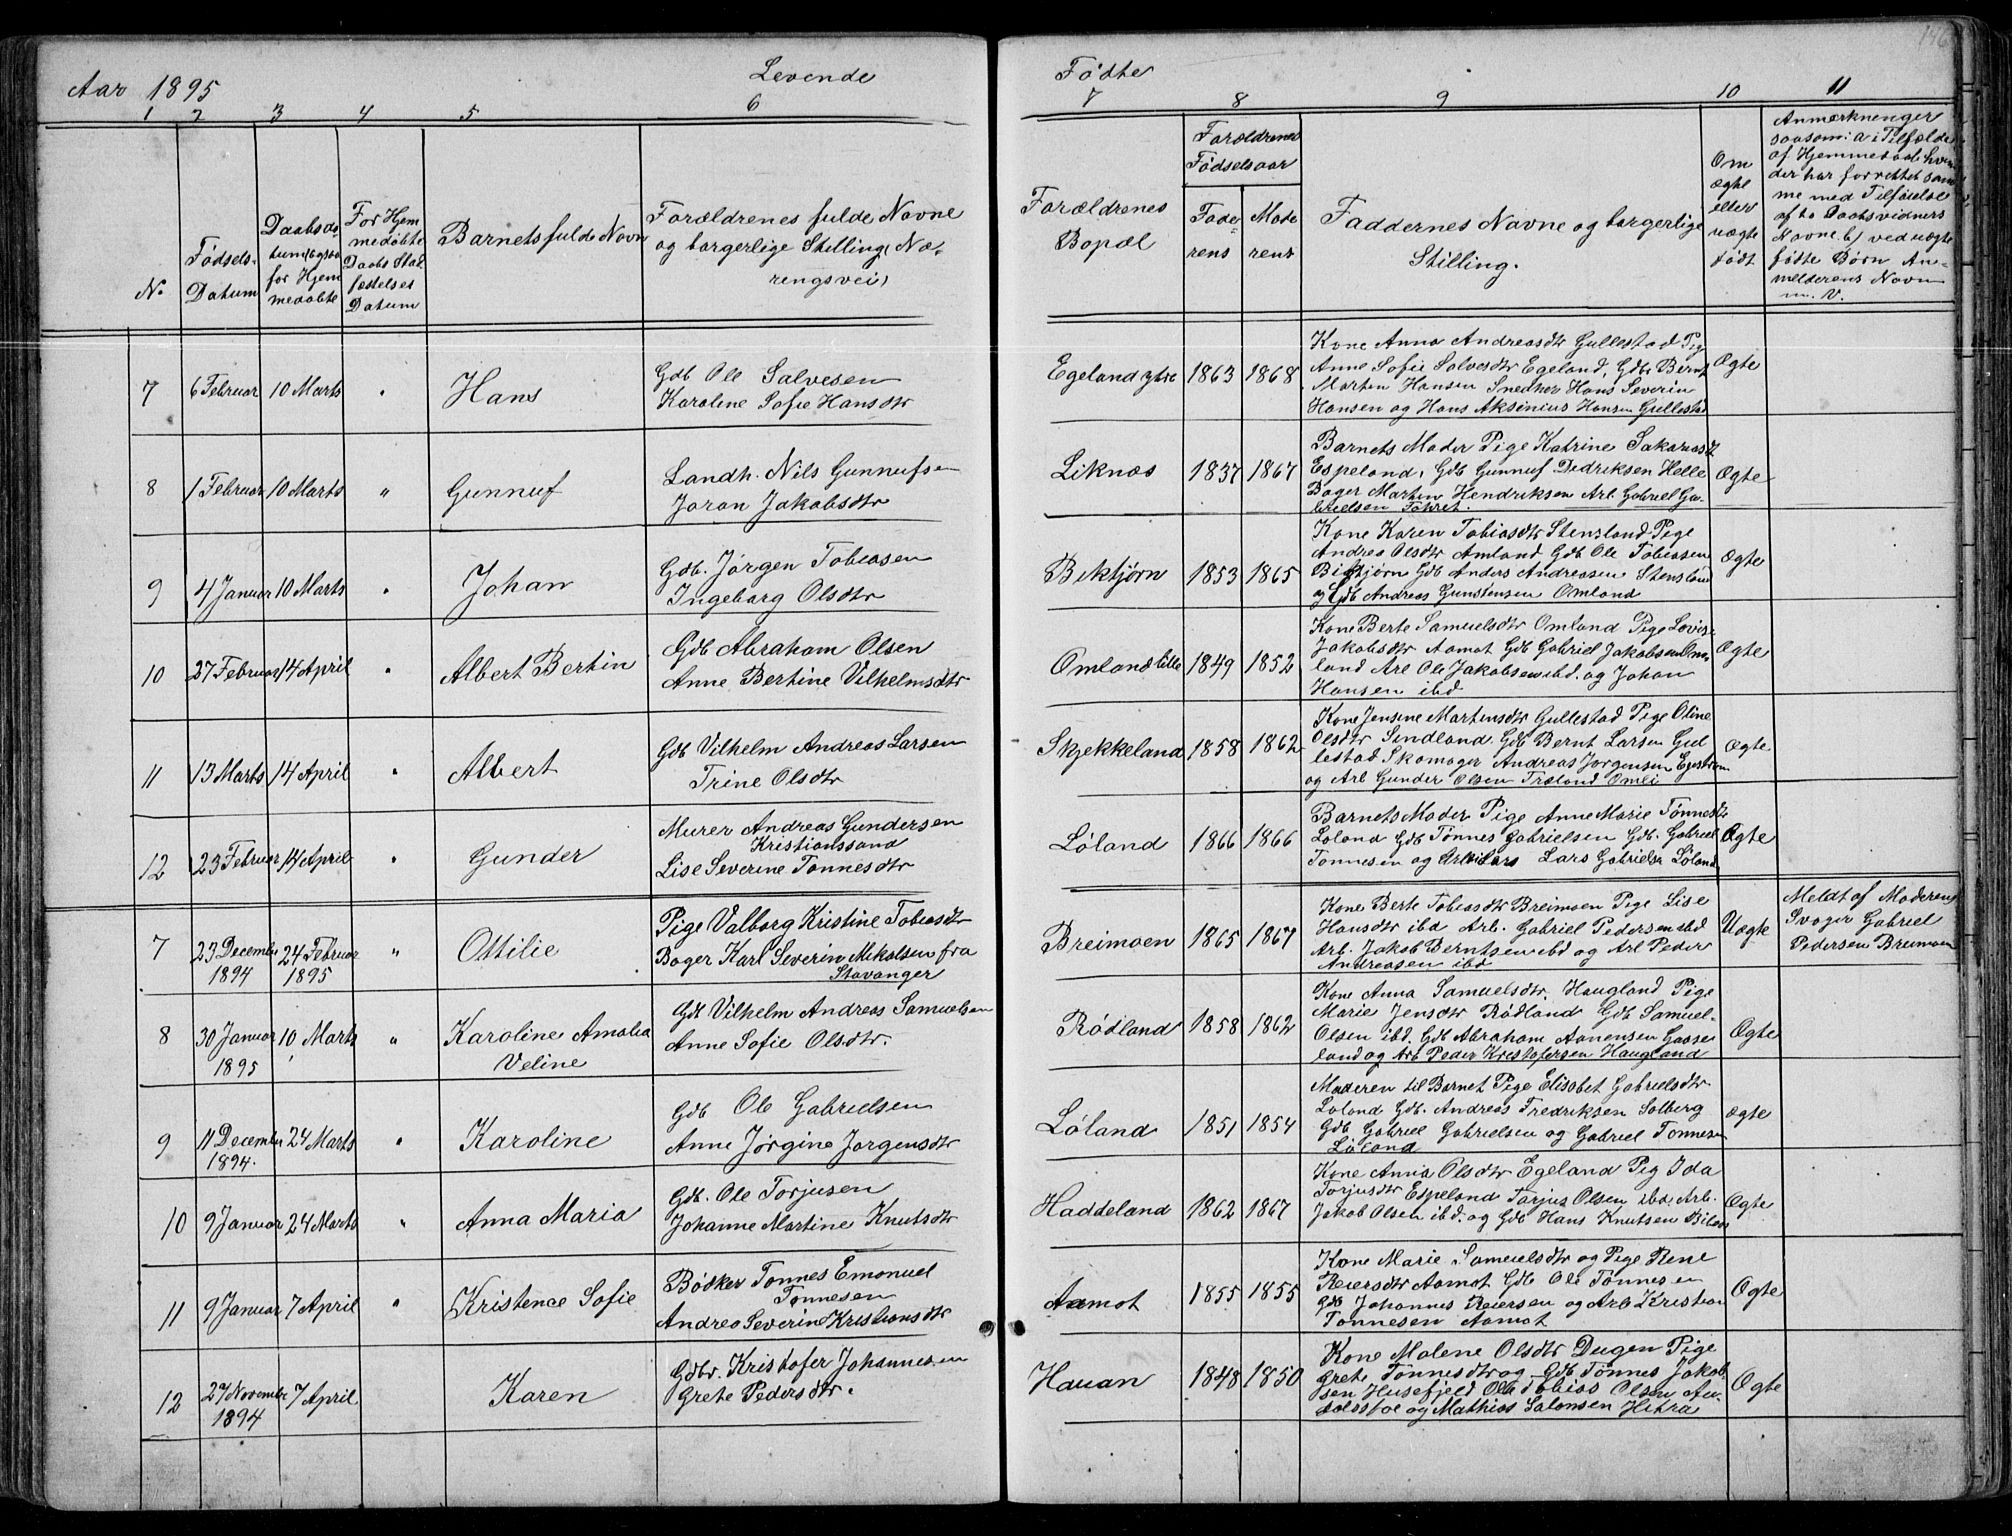 Aar 1895
Levende
Fødte
146
1 2 3 4 5 6 7 8 9 10 11
N.
Fødsels-
Datum
Daabsda
tum (ogsaa
for Hjem
medøbte
For Hjem
medøbte
Daabs Stad
fæstelses
Datum
Barnets fulde Navn
Forældrenes fulde Navne
og borgerlige Stilling (Næ-
ringsvei)
Forældrenes
Bopæl
Forældrenes
Fødselsaar
Fade
rens
Mode
rens
Faddernes Navne og borgerlige
Stilling.
Om
ægte
eller
uægte
født
Anmærkninger
saasom: a i Tilfælde
af Hjemmedaab hvem
der har forrettet sam
me med Tilføielse
af to Daabsvidners
Navne. b) ved uægte
fødte Børn An-
melderens Navn
m. v.
7
6 Februar
10 Marts
"
Hans
Gdb Ole Salvesen
Karoline Sofie Hansdtr
Egeland ytre
1863
1868
Kone Anna Andreasdtr Gullestad Pig
Anne Sofie Salvesdtr Egeland, Gdb. Bernt
Marten Hansen Snedker Hans Severin
Hansen og Hans Aksenius Hansen Gullestad
Ægte
8
1 Februar
10 Marts
"
Gunnuf
Landh. Nils Gunnufsen
Joran Jakobsdtr
Liknæs
1837
1867
Barnets Moder Pige Katrine Sakariasd
Espeland, Gdb Gunnuf Dedriksen Helle
Bager Marten Hendriksen Arb. Gabriel Ga-
brielsen Føhret.
Ægte
9
4 Januar
10 Marts
"
Johan
Gdb. Jørgen Tobiasen
Ingeborg Olsdtr
Bektjørn
1853
1865
Kone Karen Tobiasdtr Stensland Pige
Andrea Olsdtr Amland Gdb Ole Tobiasen
Bigtjørn Gdb Anders Andreasen Stensland
og Gdb Andreas Gunstensen Omland
Ægte
10
27 Februar
14 April
"
Albert Bertin
Gdb Abraham Olsen
Anne Bertine Vilhelmsdtr
Omland lille
1849
1852
Kone Berte Samuelsdtr Omland Pige Lovise
Jakobsdtr Aamot Gdb Gabriel Jakobsen Om
land Arb Ole Jakobsen ibd. og Johan
Hansen ibd
Ægte
11
13 Marts
14 April
"
Albert
Gdb Vilhelm Andreas Larsen
Trine Olsdtr
Skjekkeland
1858
1862
Kone Jensine Martensdtr Gullestad Pige Oline
Olsdtr Sindland Gdb Bernt Larsen Gul
lestad Skomager Andreas Jorgensen
og Arb Gunder Olsen Træland Omli
Ægte
12
23 Februar
14 April
"
Gunder
Murer Andreas Gundersen
Kristianssand
Lise Severine Tonnesdtr
Løland
1866
1866
Barnets Moder Pige Anne Marie Tønnesdtr
Loland Gdb Tønnes Gabrielsen Gdb. Gabriel
Tonnesen og Lars Gabrielse Løland
Ægte
7
23 December
1894
24 Februar
1895
"
Ottilie
Pige Valborg Kristine Tobiasdtr
Bager Karl Severin Mikalsen fra
Stavanger
Breimoen
1865
1867
Kone Berte Tobiasdtr Breimoen Pige Lise
Hansdtr ibd Arb. Gabriel Pedersen ibd
Arb. Jakob Berntsen ibd og Arb Peder
Andreasen ibd
Uægte
Meldt af Moderens
Svoger Gabriel
Pedersen Breimoen
8
30 Januar
1895
10 Marts
"
Karoline Amalia
Veline
Gdb Vilhelm Andreas Samuelsen
Anne Sofie Olsdtr.
Rødland
1858
1862
Kone Anna Samuelsdtr. Haugland Pige
Marie Jensdtr Rødland Gdb Samuel
Olsen ibd. Gdb Abraham Aanensen Gosse
land og Arb Peder Kristofersen Haugland
Ægte
9
11 December
1894.
24 Marts
"
Karoline
Gdb Ole Gabrielsen
Anne Jørgine Jorgensdtr
Løland
1851
1854
Moderen til Barnet Pige Elisabet Gabrielsdtr
Loland Gdb. Andreas Fredriksen Solberg
Gdb Gabriel Gabrielsen og Gabriel Tonnesen
Løland
Ægte
10
9 Januar
24 Marts
"
Anna Maria
Gdb. Ole Torjusen
Johanne Martine Knutsdtr
Haddeland
1862
1867
Kone Anna Olsdtr Egeland Pig Ida
Torjusdtr Espeland Torjus Olsen ibd Arb.
Jakob Olsen ibd. og Gdb Hans Knutsen
Ægte
11
9 Januar
7 April
"
Kristence Sofie
Bødker Tonnes Emanuel
Tønnesen
Andrea Severine Kristiansdtr
Aamot
1855
1855
Kone Marie Samuelsdtr og Pige Rene
Reiersdtr Aamot Gdb Ole Tonnesen
Gdb Johannes Reiersen og Arb Kristian
Tonnesen Aamot
Ægte
12
27 November
1894
7 April
Karen
Gdbr. Kristofer Johannesen
Grete Pedersdtr.
Hauan
1848
1850
Kone Malene Olsdtr Dugen Pige
Grete Tønnesdtr og Gdb Tønnes Jakob
sen Husefjeld Ole Tobias Olsen Au
og Mathias Salonsen Hitra
Ægte